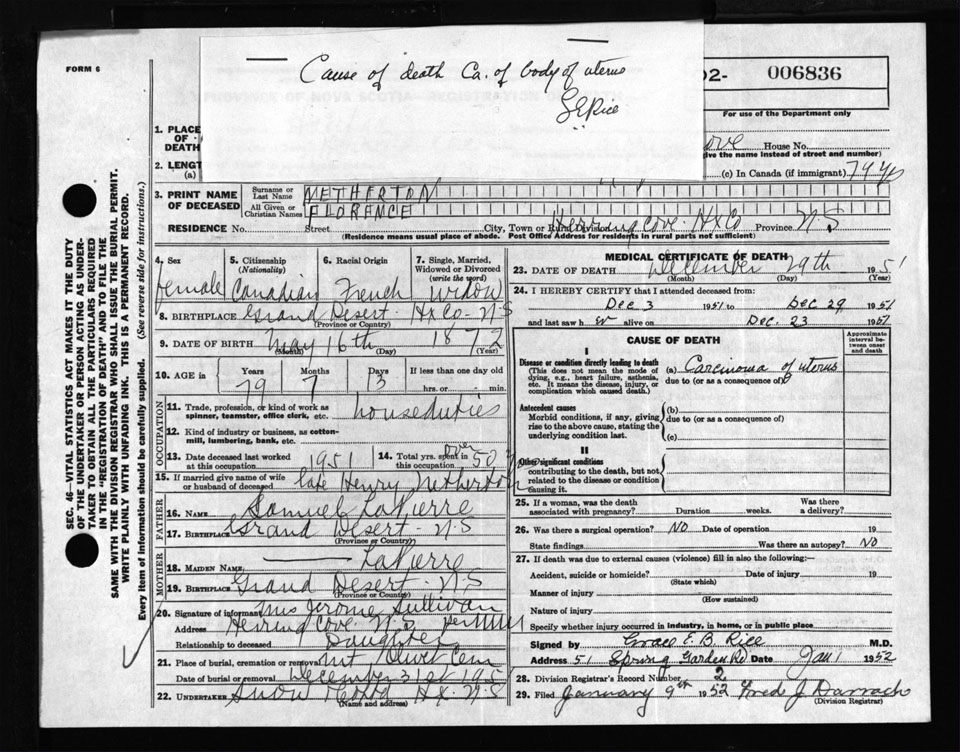 FORM 6
Cause of death Ca. of body of uterus
02- 006836
For use of the Department only
1. PLACE OF DEATH
House No.
give the name instead of street and number)
2. LENGT
(a)
(c) In Canada (if immigrant) 79 yrs
3. PRINT NAME OF DECEASED
Surname or Last Name NETHERTON
All Given or Christian Names FLORENCE
RESIDENCE No. Street City, Town or Rural Division Herring Cove Hx Co Province N.S
(Residence means usual place of abode. Post Office Address for residents in rural parts not sufficient)
SEC. 46—VITAL STATISTICS ACT MAKES IT THE DUTY
OF THE UNDERTAKER OR PERSON ACTING AS UNDER-
TAKER TO OBTAIN ALL THE PARTICULARS REQUIRED
IN THE "REGISTRATION OF DEATH" AND TO FILE THE
SAME WITH THE DIVISION REGISTRAR WHO SHALL ISSUE THE BURIAL PERMIT.
WRITE PLAINLY WITH UNFADING INK. THIS IS A PERMANENT RECORD.
Every item of Information should be carefully supplied. (See reverse side for instructions.)
4. Sex female
5. Citizenship (Nationality) Canadian
6. Racial Origin French
7. Single, Married, Widowed or Divorced (write the word) Widow
8. BIRTHPLACE Grand Desert - Hx Co - N-S
(Province or Country)
9. DATE OF BIRTH May 16th 1872
(Month) (Day) (Year)
10. AGE in Years 79 Months 7 Days 13 If less than one day old hrs. or min.
OCCUPATION
11. Trade, profession, or kind of work as spinner, teamster, office clerk, etc. houseduties
12. Kind of industry or business, as cotton-mill, lumbering, bank, etc.
13. Date deceased last worked at this occupation 1951
14. Total yrs. spent in this occupation over 50
15. If married give name of wife or husband of deceased late Henry Netherton
FATHER
16. NAME Samuel LaPierre
17. BIRTHPLACE Grand Desert - N-S
(Province or Country)
MOTHER
18. MAIDEN NAME LaPierre
19. BIRTHPLACE Grand Desert - N-S
(Province or Country)
20. Signature of informant Mrs Jerome Sullivan
Address Herring Cove N.S
Relationship to deceased Daughter
21. Place of burial, cremation or removal Mt Olivet Cem
Date of burial or removal December 31st 1951
22. UNDERTAKER Snow Hx. N-S
(Name and address)
MEDICAL CERTIFICATE OF DEATH
23. DATE OF DEATH December 29th 1951
(Month) (Day) (Year)
24. I HEREBY CERTIFY that I attended deceased from:
Dec 3 1951 to Dec 29 1951
and last saw h er alive on Dec. 23 1951
CAUSE OF DEATH
Approximate interval between onset and death
I
Disease or condition directly leading to death
(This does not mean the mode of dying, e.g., heart failure, asthenia, etc. It means the disease, injury, or complication which caused death.)
(a) Carcinoma of uterus
due to (or as a consequence of)
Antecedent causes
Morbid conditions, if any, giving rise to the above cause, stating the underlying condition last.
(b)
due to (or as a consequence of)
(c)
II
Other significant conditions
contributing to the death, but not related to the disease or condition causing it.
25. If a woman, was the death associated with pregnancy? Duration weeks. Was there a delivery?
26. Was there a surgical operation? NO Date of operation 19
State findings Was there an autopsy? NO
27. If death was due to external causes (violence) fill in also the following:—
Accident, suicide or homicide? Date of injury 19
(State which)
Manner of injury
(How sustained)
Nature of injury
Specify whether injury occurred in industry, in home, or in public place
Signed by Grace E. B. Rice M.D.
Address 51 Spring Garden Rd Date Jan 1 1952
28. Division Registrar's Record Number 2
29. Filed January 9th 1952 Fred J Darrach
(Division Registrar)